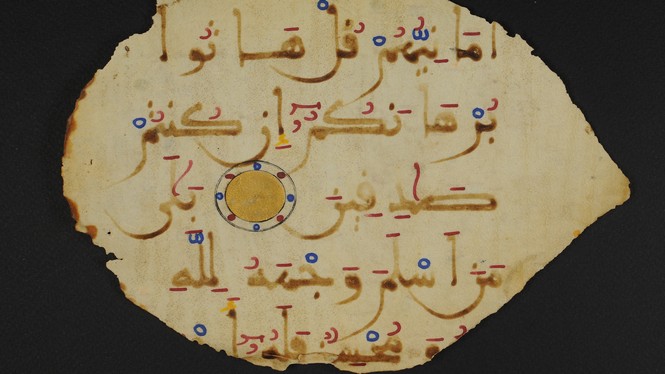 أَمَانِيُّهُمْ قُلْ هَاتُوا
بُرْهَانَكُمْ إِن كُنتُمْ
صَٰدِقِينَ بَلَىٰ
مَنْ أَسْلَمَ وَجْهَهُ لِلَّهِ
مُحْسِنٌ فَلَهُ